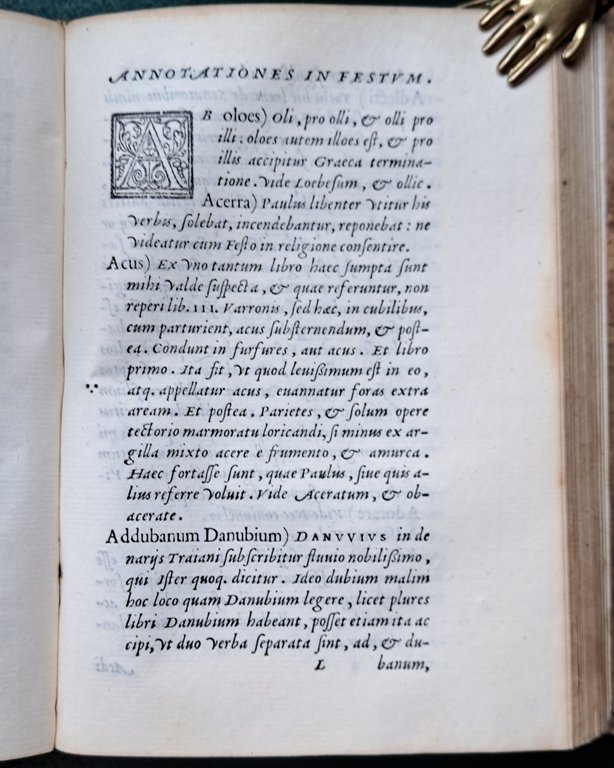 ANNOTATIONES IN FESTVM.
AB oloes) Oli, pro olli, & olli pro
illi. oloes autem illoes est, & pro
illis accipitur Graeca termina-
tione. Vide Loebesum, & ollic.
Acerra) Paulus libenter vtitur his
verbis, solebat, incendebantur, reponebat: ne
videatur cum Festo in religione consentire.
Acus) Ex vno tantum libro haec sumpta sunt
mihi valde suspecta, & quae referuntur, non
reperi lib. III. Varronis, sed haec, in cubilibus,
cum parturient, acus substernendum, & post-
ea. Condunt in furfures, aut acus. Et libro
primo. Ita fit, vt quod leuissimum est in eo,
atq. appellatur acus, euannatur foras extra
aream. Et postea. Parietes, & solum opere
tectorio marmoratu loricandi, si minus ex ar-
gilla mixto acere e frumento, & amurca.
Haec fortasse sunt, quae Paulus, siue quis a-
lius referre voluit. Vide Aceratum, & ob-
acerate.
Addubanum Danubium) DANVVIVS in de
narijs Traiani subscribitur fluuio nobilissimo,
qui Ister quoq. dicitur. Ideo dubium malim
hoc loco quam Danubium legere, licet plures
libri Danubium habeant, posset etiam ita ac
cipi, vt duo verba separata sint, ad, & du-
L banum,